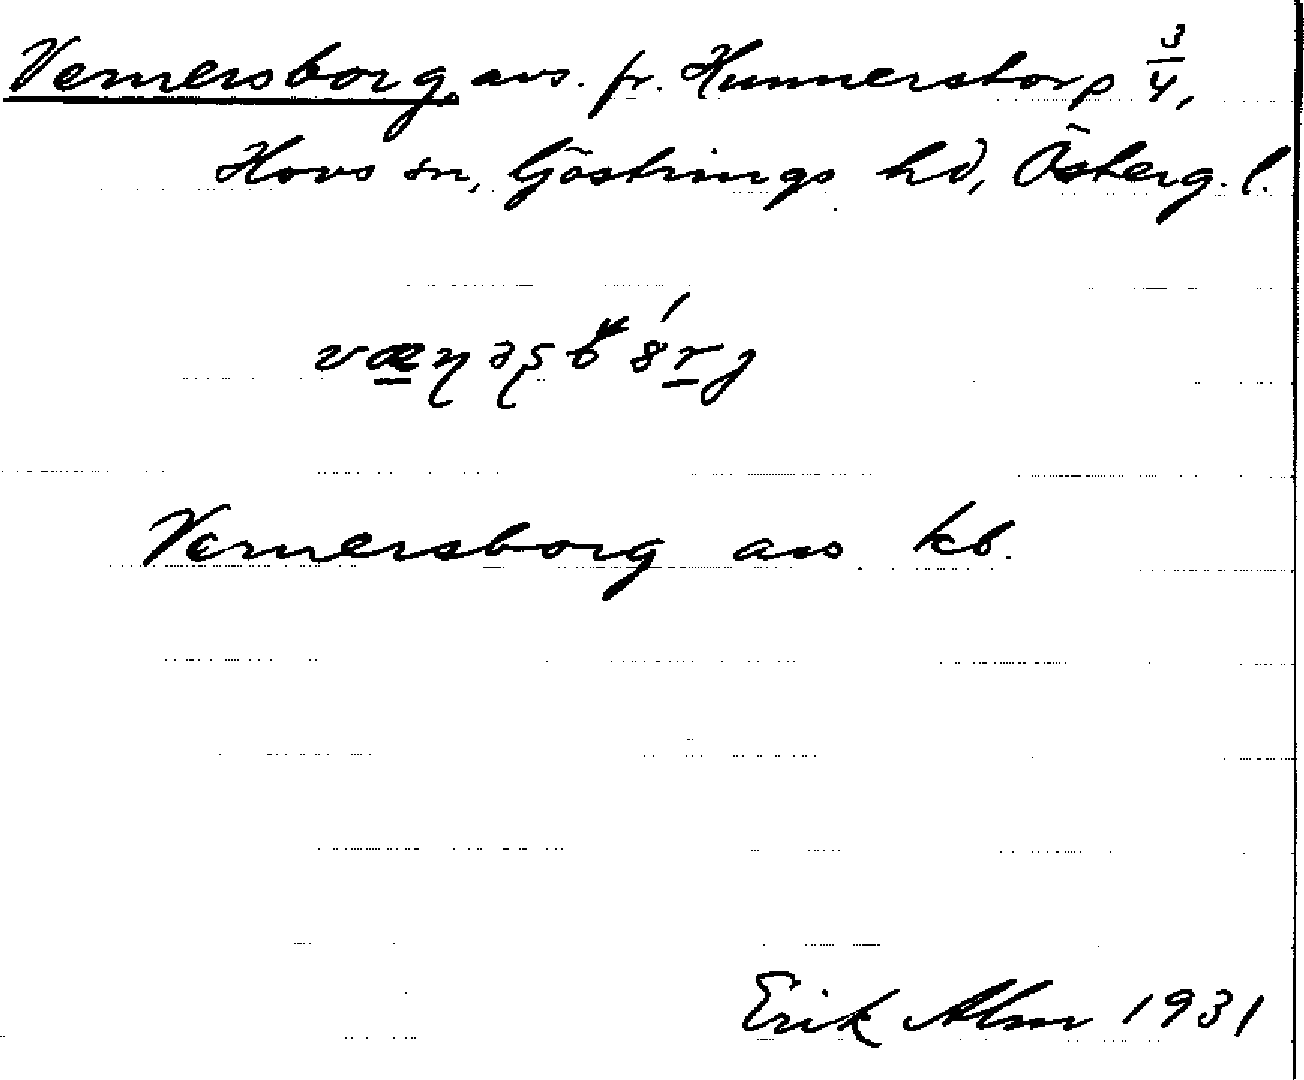 Vernersborg, avs. fr. Hunnerstorp 3/4,
Hovs sn, Göstrings hd, Österg. l.
Vernersborg avs kb.
Erik Alm 1931